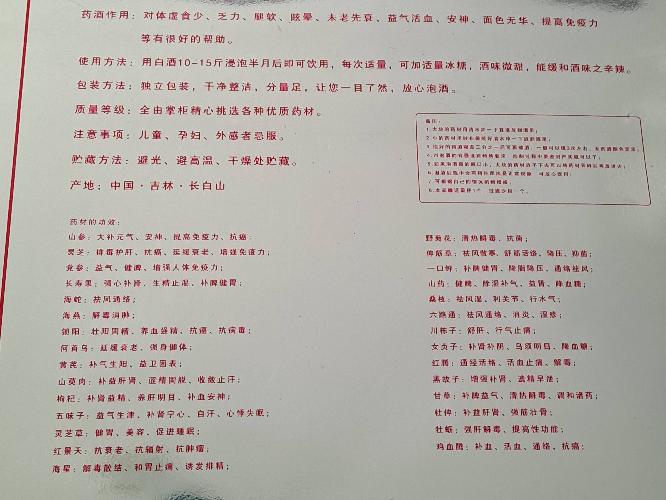 药酒作用：对体虚食少、乏力、腿软、眩晕、未老先衰、益气活血、安神、面色无华、提高免疫力
等有很好的帮助。
使用方法：用白酒10-15斤浸泡半月后即可饮用，每次适量，可加适量冰糖，酒味微甜，能缓和酒味之辛辣。
包装方法：独立包装，干净整洁，分量足，让您一目了然，放心泡酒。
质量等级：全由掌柜精心挑选各种优质药材。
注意事项：儿童、孕妇、外感者忌服。
贮藏方法：避光、避高温、干燥处贮藏。
产地：中国·吉林·长白山
药材的功效：
山参：大补元气、安神、提高免疫力、抗癌；
灵芝：排毒护肝、抗癌、延缓衰老、增强免疫力；
党参：益气、健脾、增强人体免疫力；
长寿果：强心补肾、生精止渴、补脾健胃；
海蛇：祛风通络；
海燕：解毒消肿；
锁阳：壮阳固精、养血强精、抗癌、抗病毒；
何首乌：延缓衰老、强身健体；
黄芪：补气生阳、益卫固表；
山萸肉：补益肝肾、涩精固脱、收敛止汗；
枸杞：补肾益精、养肝明目、补血安神；
五味子：益气生津、补肾宁心、自汗、心悸失眠；
灵芝草：健胃、美容、促进睡眠；
红景天：抗衰老、抗辐射、抗肿瘤；
海星：解毒散结、和胃止痛、诱发排精；
备注：
野菊花：清热解毒、抗菌；
伸筋草：祛风散寒、舒筋活络、降压、抑菌；
一口钟：补脾健胃、降脂降压、通络祛风；
山药：健脾、除湿补气、益肾、降血糖；
桑枝：祛风湿、利关节、行水气；
六路通：祛风通络、消炎、湿疹；
川栋子：舒肝、行气止痛；
女贞子：补肾补阴、乌须明目、降血糖；
红腾：通经活络、活血止痛、解毒；
黑故子：增强补肾、遗精早泄；
甘草：补脾益气、清热解毒、调和诸药；
杜仲：补益肝肾、强筋壮骨；
牡蛎：强肝解毒、提高性功能；
鸡血腾：补血、活血、通络、抗癌；